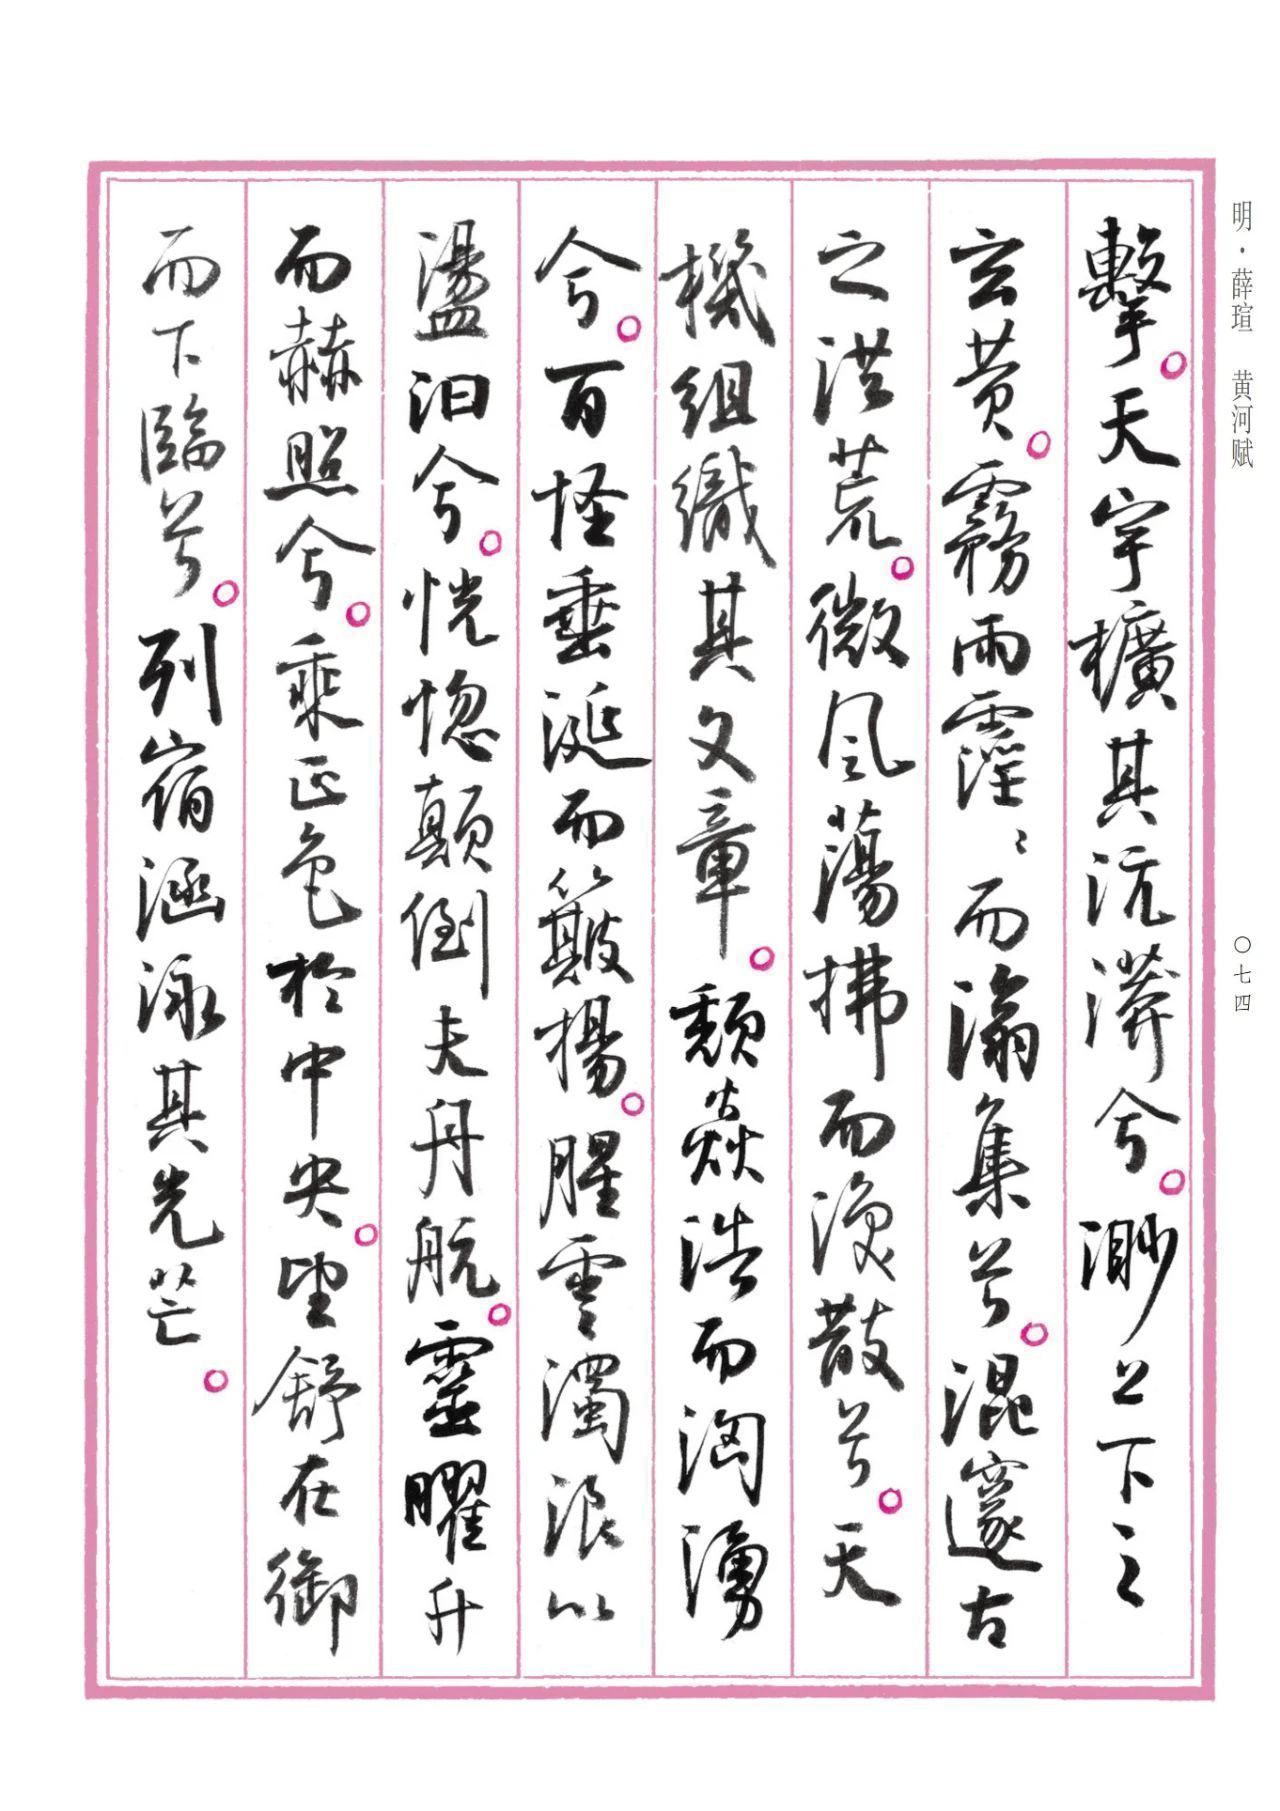 明·薛瑄　黄河赋
擊。天宇擴其沆漭兮。渺上下之
玄黄。霧雨霪々而滃集兮。混邃古
之洪荒。微風蕩拂而渙散兮。天
機組織其文章。頹焱浩而洶湧
兮。百怪垂涎而簸揚。腥雲濁浪以
盪汨兮。恍惚顛倒夫舟航。靈曜升
而赫照兮。乘正色於中央。望舒在御
而下臨兮。列宿涵泳其光芒。
〇七四